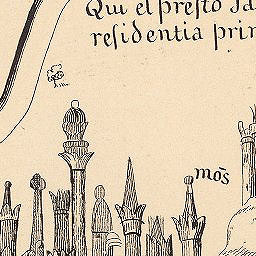 Qui el presto Ja
residentia prin
mōs